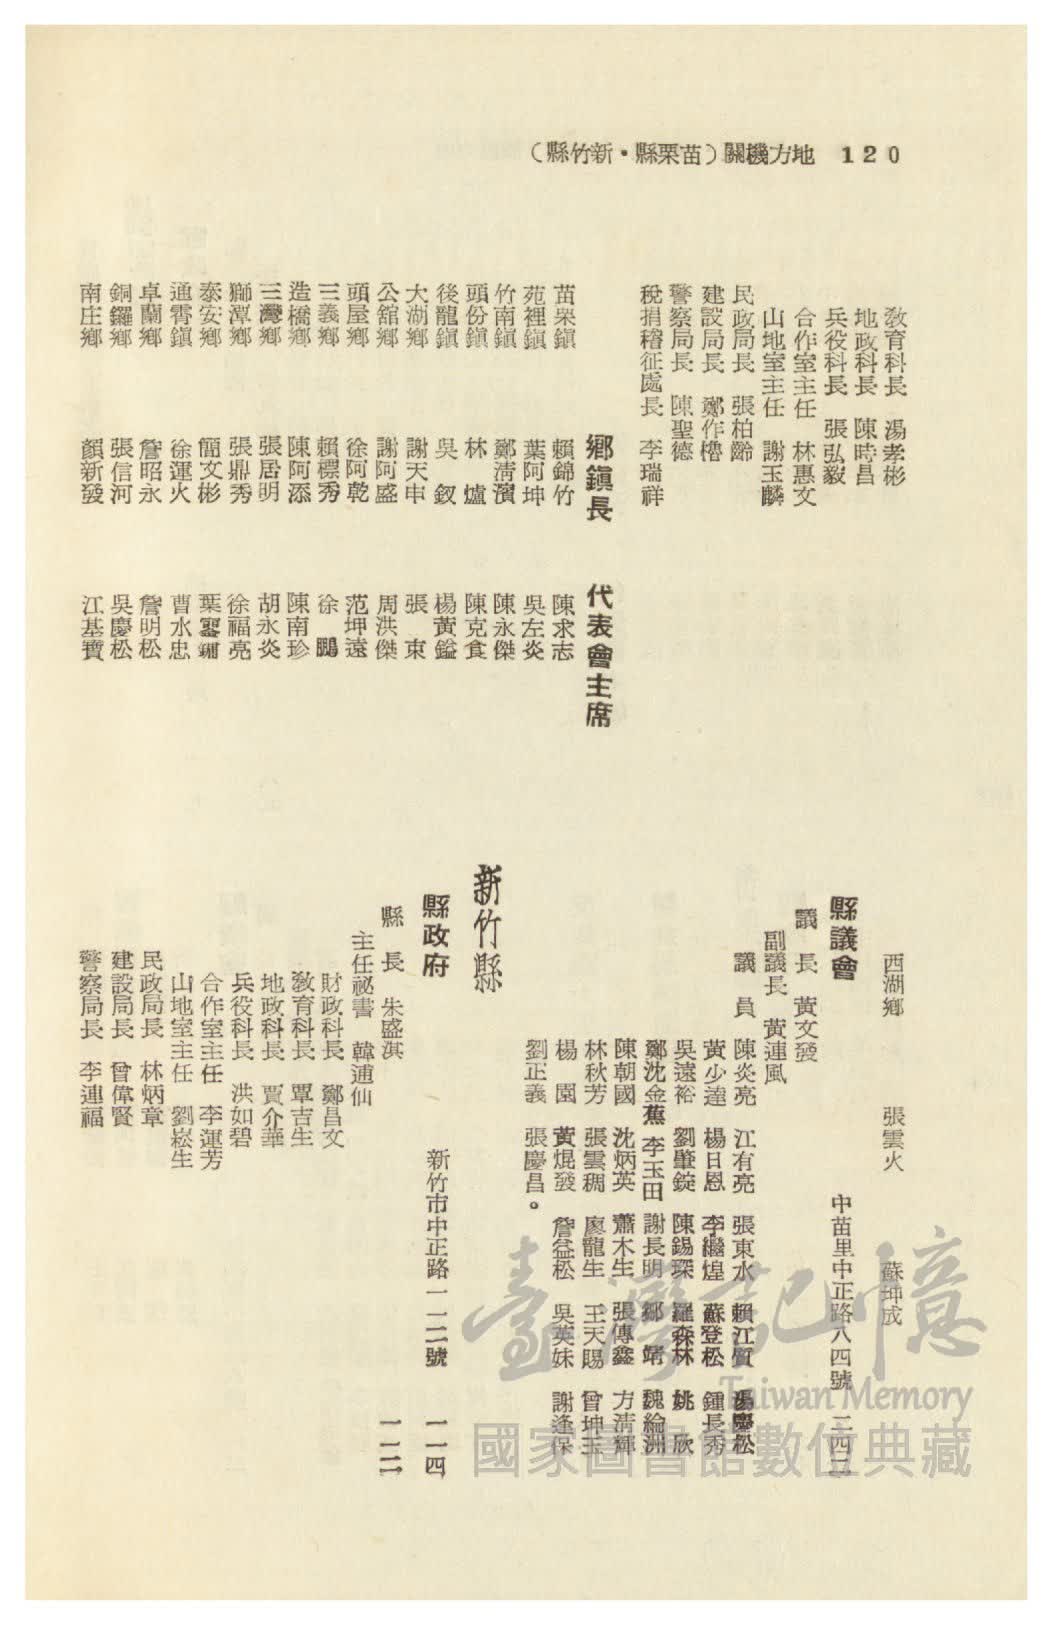 120　地方機關（苗栗縣・新竹縣）
教育科長　湯孝彬
地政科長　陳時昌
兵役科長　張弘毅
合作室主任　林惠文
山地室主任　謝玉麟
民政局長　張柏齡
建設局長　鄭作櫓
警察局長　陳聖德
稅捐稽征處長　李瑞祥
鄉鎮長　代表會主席
苗栗鎮　賴錦竹　陳求志
苑裡鎮　葉阿坤　吳左炎
竹南鎮　鄭清濱　陳永傑
頭份鎮　林爐　陳克食
後龍鎮　吳釵　楊黃鎰
大湖鄉　謝天申　張東
公舘鄉　謝阿盛　周洪傑
頭屋鄉　徐阿乾　范坤遠
三義鄉　賴標秀　徐鵬
造橋鄉　陳阿添　陳南珍
三灣鄉　張居明　胡永炎
獅潭鄉　張鼎秀　徐福亮
泰安鄉　簡文彬　葉鏞
通霄鎮　徐運火　曹水忠
卓蘭鄉　詹昭永　詹明松
銅鑼鄉　張信河　吳慶松
南庄鄉　顏新發　江基寶
西湖鄉　張雲火　蘇坤成
縣議會　中苗里中正路八四號　二四二
議長　黃文發
副議長　黃連風
議員　陳炎亮　江有亮　張東水　賴江質　湯慶松
黃少達　楊日恩　李繼煌　蘇登松　鍾長秀
吳遠裕　劉肇錠　陳錫琛　羅森林　姚欣
鄭沈金蕉　李玉田　謝長明　鄒靖　魏綸洲
陳朝國　沈炳英　蕭木生　張傳鑫　方清輝
林秋芳　張雲稠　廖龍生　王天賜　曾坤玉
楊園　黃焜發　詹益松　吳英妹　謝逢保
劉正義　張慶昌。
新竹縣
縣政府　新竹市中正路一一二號　一一四
縣長　朱盛淇　一二二
主任祕書　韓逋仙
財政科長　鄭昌文
教育科長　覃吉生
地政科長　賈介華
兵役科長　洪如碧
合作室主任　李運芳
山地室主任　劉崧生
民政局長　林炳章
建設局長　曾偉賢
警察局長　李連福
臺灣記憶
Taiwan Memory
國家圖書館數位典藏